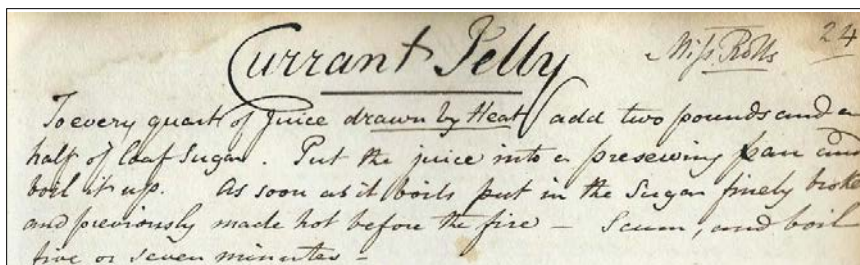 Currant Jelly
Miss Rolls
24
To every quart of juice drawn by Heat add two pounds and a
half of loaf Sugar. Put the juice into a preserving pan and
boil it up. As soon as it boils put in the Sugar finely broke
and previously made hot before the fire – Scum, and boil
five or seven minutes –